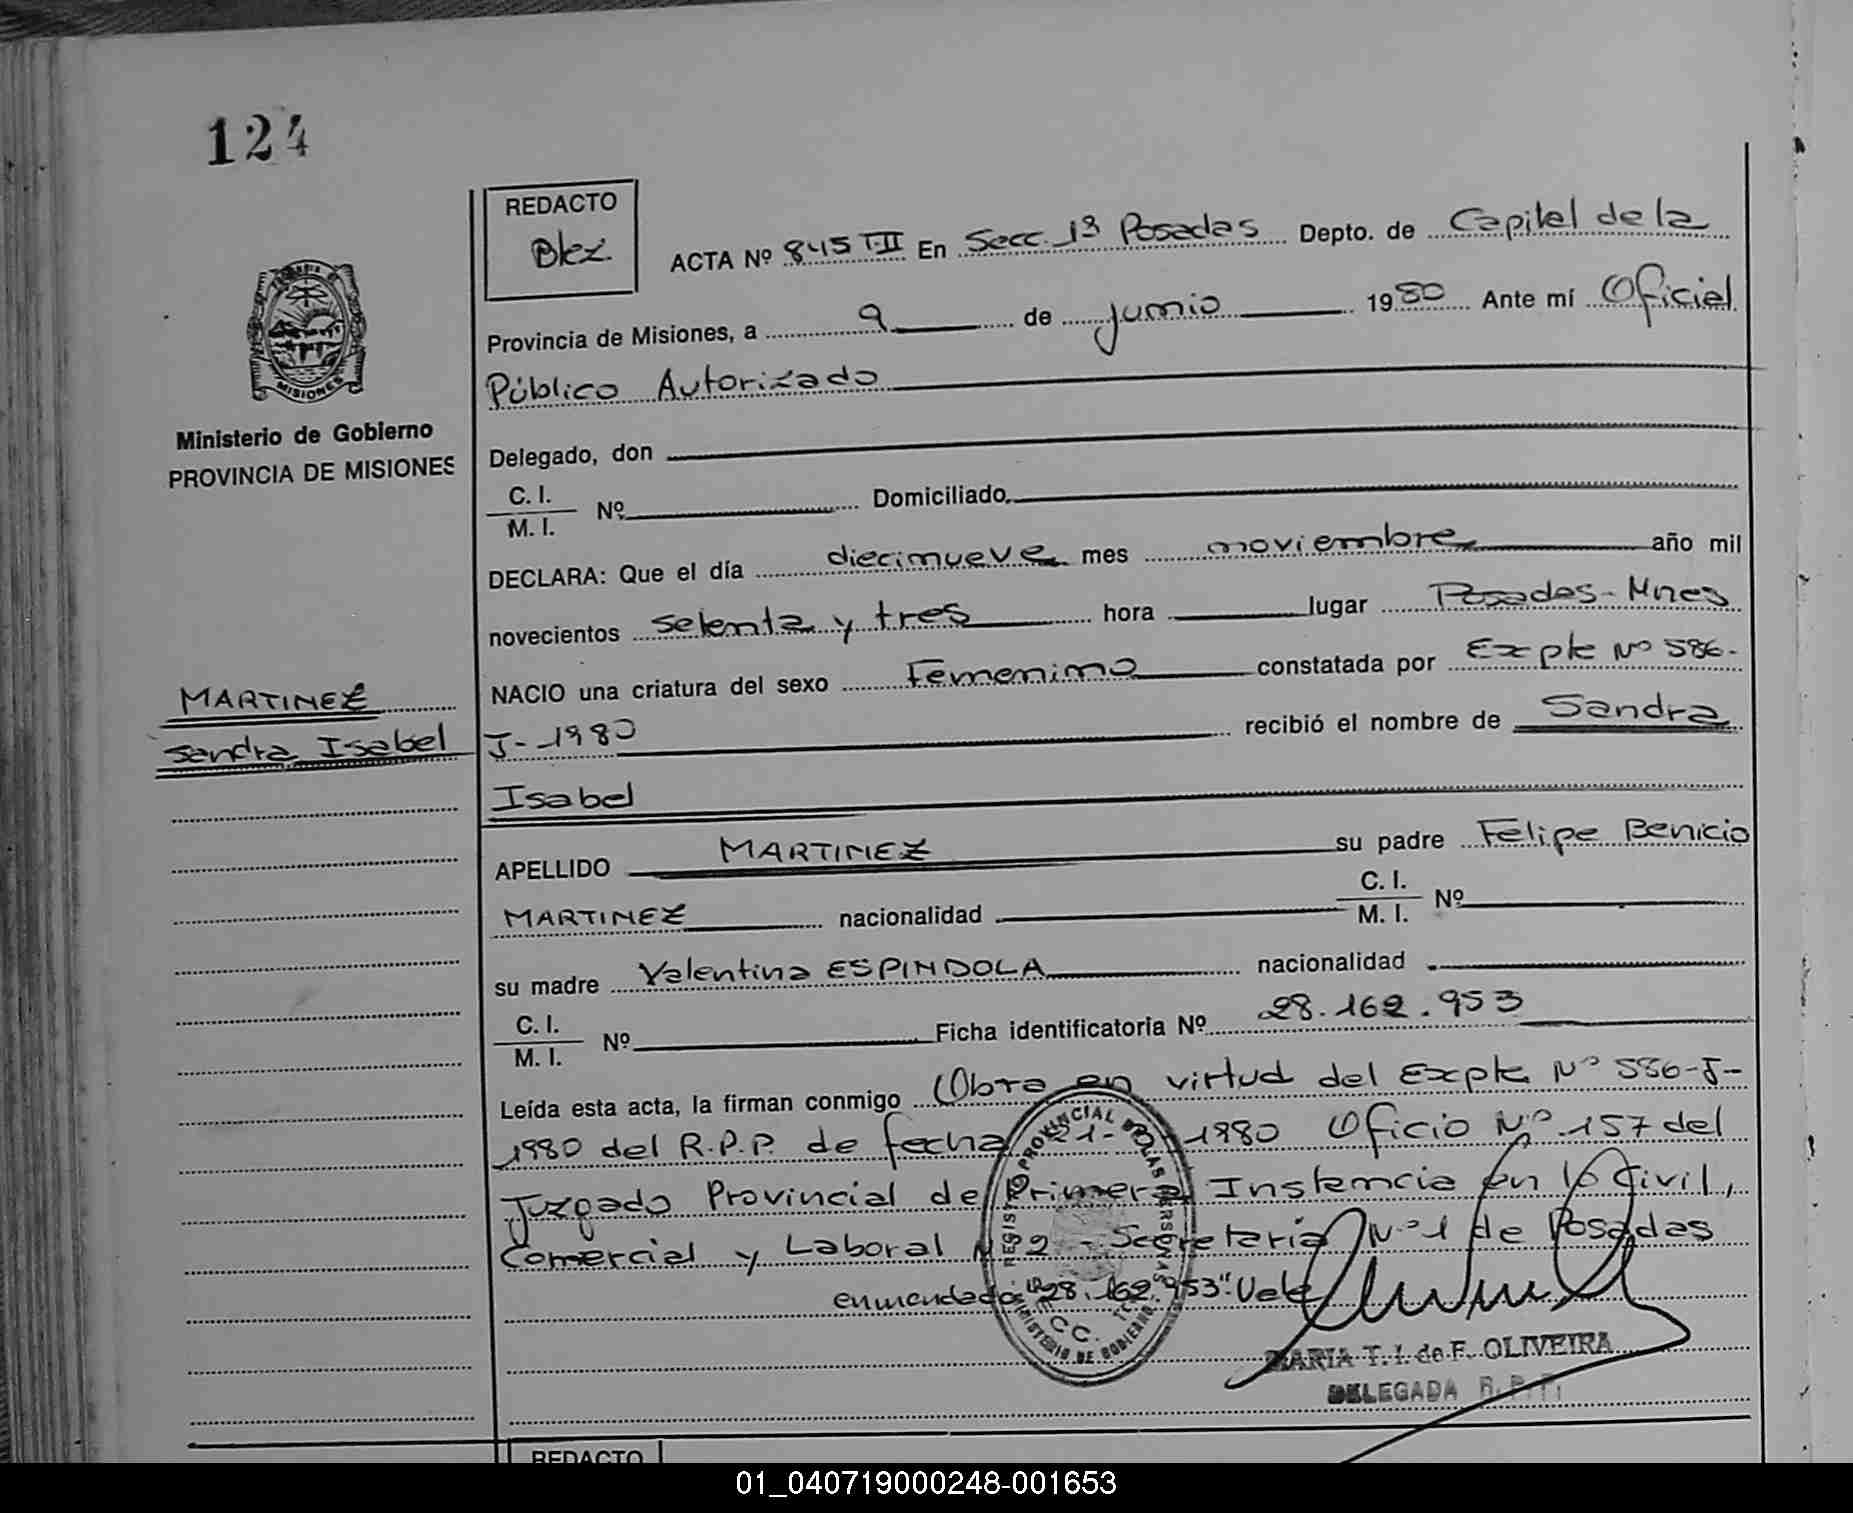 124
REDACTO
Blez.
ACTA Nº 845 T-II En Secc. 1ª Posadas Depto. de Capital de la
Provincia de Misiones, a 9 de junio 1980 Ante mí Oficial
Público Autorizado
MISIONES
Ministerio de Gobierno
PROVINCIA DE MISIONES
Delegado, don
C. I.
M. I. Nº Domiciliado
DECLARA: Que el día diecinueve mes noviembre año mil
novecientos setenta y tres hora lugar Posadas-Mnes
MARTINEZ
Sandra Isabel
NACIO una criatura del sexo Femenino constatada por Expte Nº 586-
J-1980 recibió el nombre de Sandra
Isabel
APELLIDO MARTINEZ su padre Felipe Benicio
MARTINEZ nacionalidad C. I.
M. I. Nº
su madre Valentina ESPINDOLA nacionalidad
C. I.
M. I. Nº Ficha identificatoria Nº 28.162.953
Leída esta acta, la firman conmigo Obra en virtud del Expte Nº 586-J-
1980 del R.P.P. de fecha 21- 1980 Oficio Nº 157 del
Juzgado Provincial de Primera Instancia en lo Civil,
Comercial y Laboral Nº 2 - Secretaría Nº 1 de Posadas
enmendado "28.162.953" Vale
REGISTRO PROVINCIAL DE LAS PERSONAS
MINISTERIO DE GOBIERNO
SECC. 1ª
MARIA T. I. de F. OLIVEIRA
DELEGADA R. P. P.
REDACTO
01_040719000248-001653